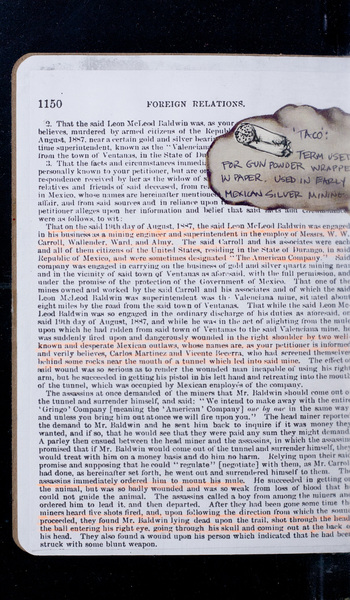 1150 FOREIGN RELATIONS.
2. That the said Leon McLeod Baldwin was, as your
believes, murdered by armed citizens of the Repu
August, 1887, near a certain gold and silver
time superintendent, known as the "Valencian
from the town of Ventanas, in the State of Du
3. That the facts and circumstances immedia
personally known to your petitioner, but are
respondence received by her as the widow of
relatives and friends of said deceased, from
in Mexico, whose names are hereinafter mentioned
affair, and from said sources and in reliance upon
petitioner alleges upon her information and belief that said facts and circumstances
were as follows, to wit:
"TACO:"
TERM USED
FOR GUN POWDER WRAPPE
W PAPER. USED IN EARLY
MEXICAN SILVER MINING
That on the said 19th day of August, 1887, the said Leon McLeod Baldwin was engaged
in his business as a mining engineer and superintendent in the employ of Messrs. W. W.
Carroll, Wallender, Ward, and Almy. The said Carroll and his associates were each
and all of them citizens of the United States, residing in the State of Durango, in said
Republic of Mexico, and were sometimes designated "The American Company." Said
company was engaged in carrying on the business of gold and silver quartz mining near
and in the vicinity of said town of Ventanas aforesaid, with the full permission, and
under the promise of the protection of the Government of Mexico. That one of the
mines owned and worked by the said Carroll and his associates and of which the said
Leon McLeod Baldwin was superintendent was the Valencian mine, situated about
eight miles by the road from the said town of Ventanas. That while the said Leon Mc-
Leod Baldwin was so engaged in the ordinary discharge of his duties as aforesaid, on
said 19th day of August, 1887, and while he was in the act of alighting from the mule
upon which he had ridden from said town of Ventanas to the said Valencian mine, he
was suddenly fired upon and dangerously wounded in the right shoulder by two well-
known and desperate Mexican outlaws, whose names are, as your petitioner is informed
and verily believes, Carlos Martinez and Vicente Becerra, who had screened themselves
behind some rocks near the mouth of a tunnel which led into said mine. The effect of
said wound was so serious as to render the wounded man incapable of using his right
arm, but he succeeded in getting his pistol in his left hand and retreating into the mouth
of the tunnel, which was occupied by Mexican employés of the company.
The assassins at once demanded of the miners that Mr. Baldwin should come out of
the tunnel and surrender himself, and said: "We intend to make away with the entire
'Gringo' Company [meaning the 'American' Company] one by one in the same way
and unless you bring him out at once we will fire upon you." The head miner reported
the demand to Mr. Baldwin and he sent him back to inquire if it was money they
wanted, and if so, that he would see that they were paid any sum they might demand.
A parley then ensued between the head miner and the assassins, in which the assassins
promised that if Mr. Baldwin would come out of the tunnel and surrender himself, they
would treat with him on a money basis and do him no harm. Relying upon their said
promise and supposing that he could "regulate" [negotiate] with them, as Mr. Carroll
had done, as hereinafter set forth, he went out and surrendered himself to them. The
assassins immediately ordered him to mount his mule. He succeeded in getting on
the animal, but was so badly wounded and was so weak from loss of blood that he
could not guide the animal. The assassins called a boy from among the miners and
ordered him to lead it, and then departed. After they had been gone some time the
miners heard five shots fired, and, upon following the direction from which the sound
proceeded, they found Mr. Baldwin lying dead upon the trail, shot through the head,
the ball entering his right eye, going through his skull and coming out at the back of
his head. They also found a wound upon his person which indicated that he had been
struck with some blunt weapon.